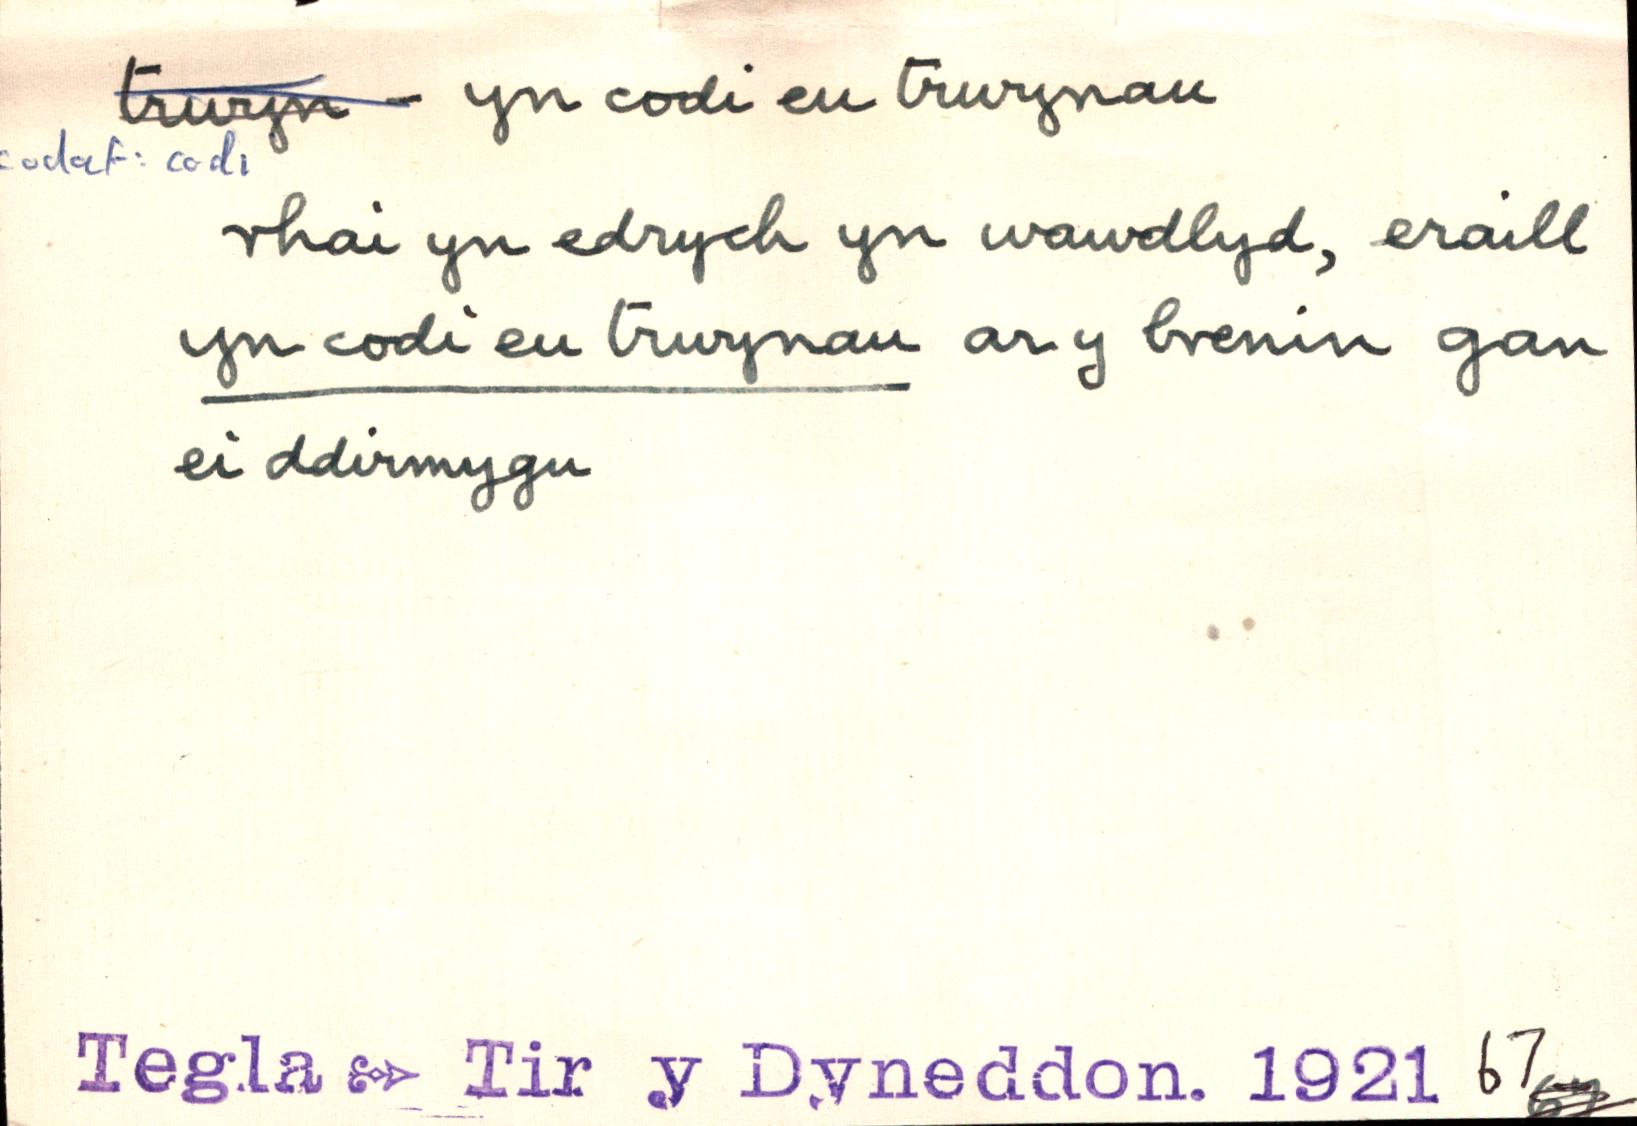 trwyn - yn codi eu trwynau
codaf: codi
rhai yn edrych yn wawdlyd, eraill
yn codi eu trwynau ar y brenin gan
ei ddirmygu
Tegla Tir y Dyneddon. 1921 67